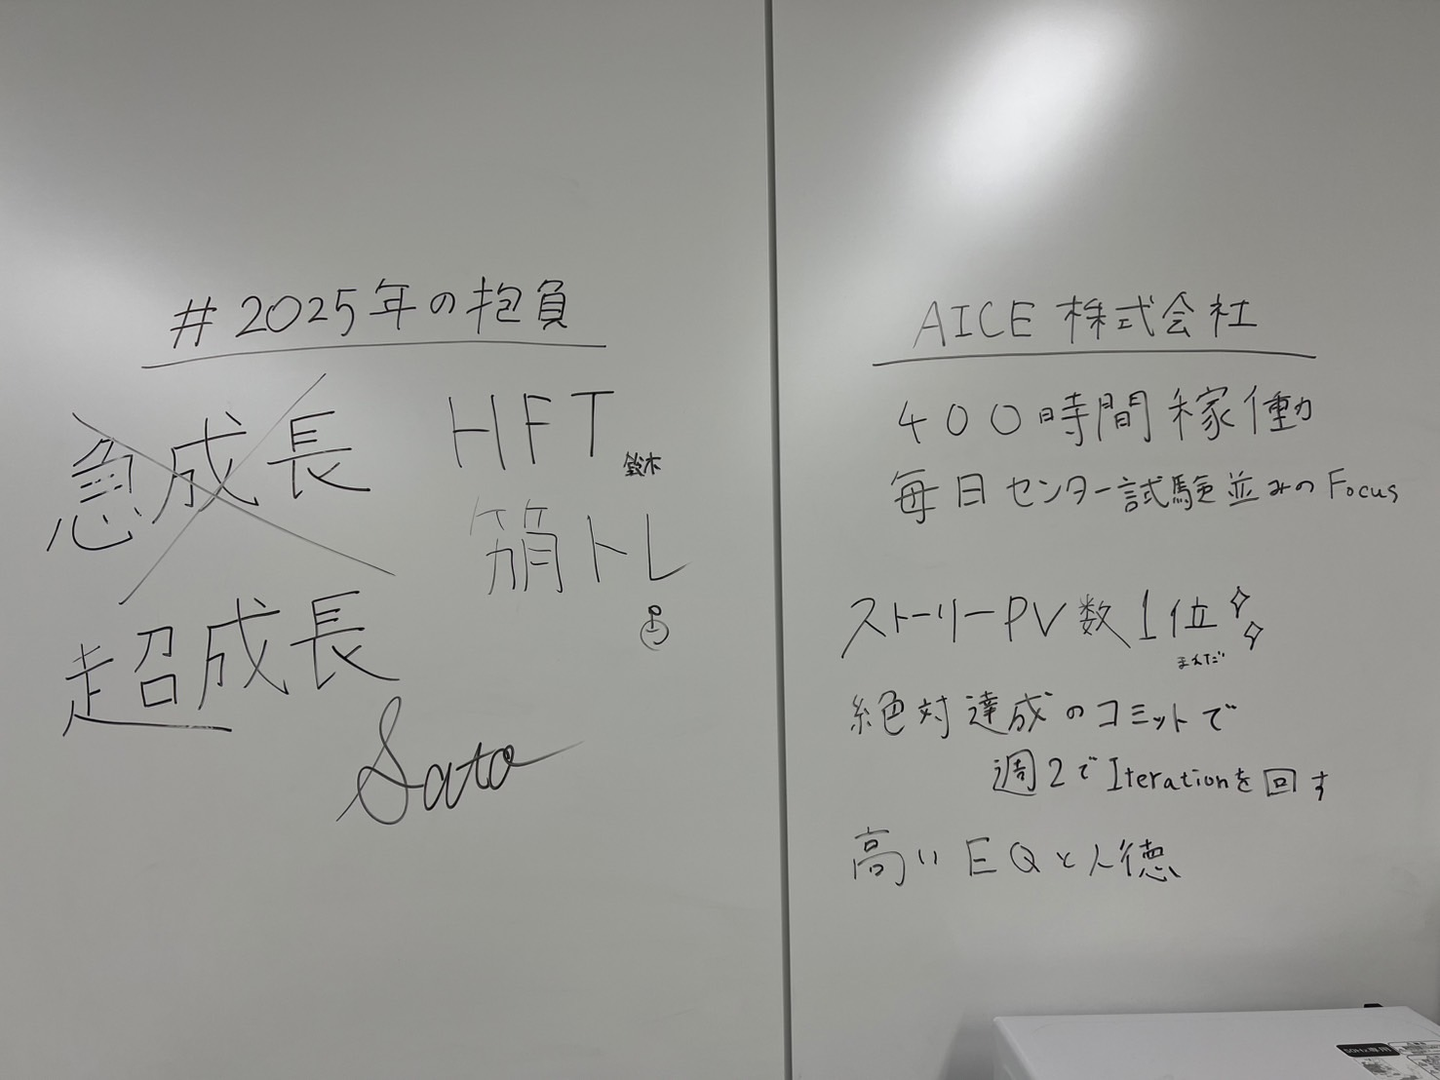 #2025年の抱負
急成長
超成長
Sato
HFT
鈴木
筋トレ
AICE 株式会社
400時間稼働
毎日センター試験並みのFocus
ストーリーPV数1位
まえだ
絶対達成のコミットで
週2でIterationを回す
高いEQと人徳
50Hz専用